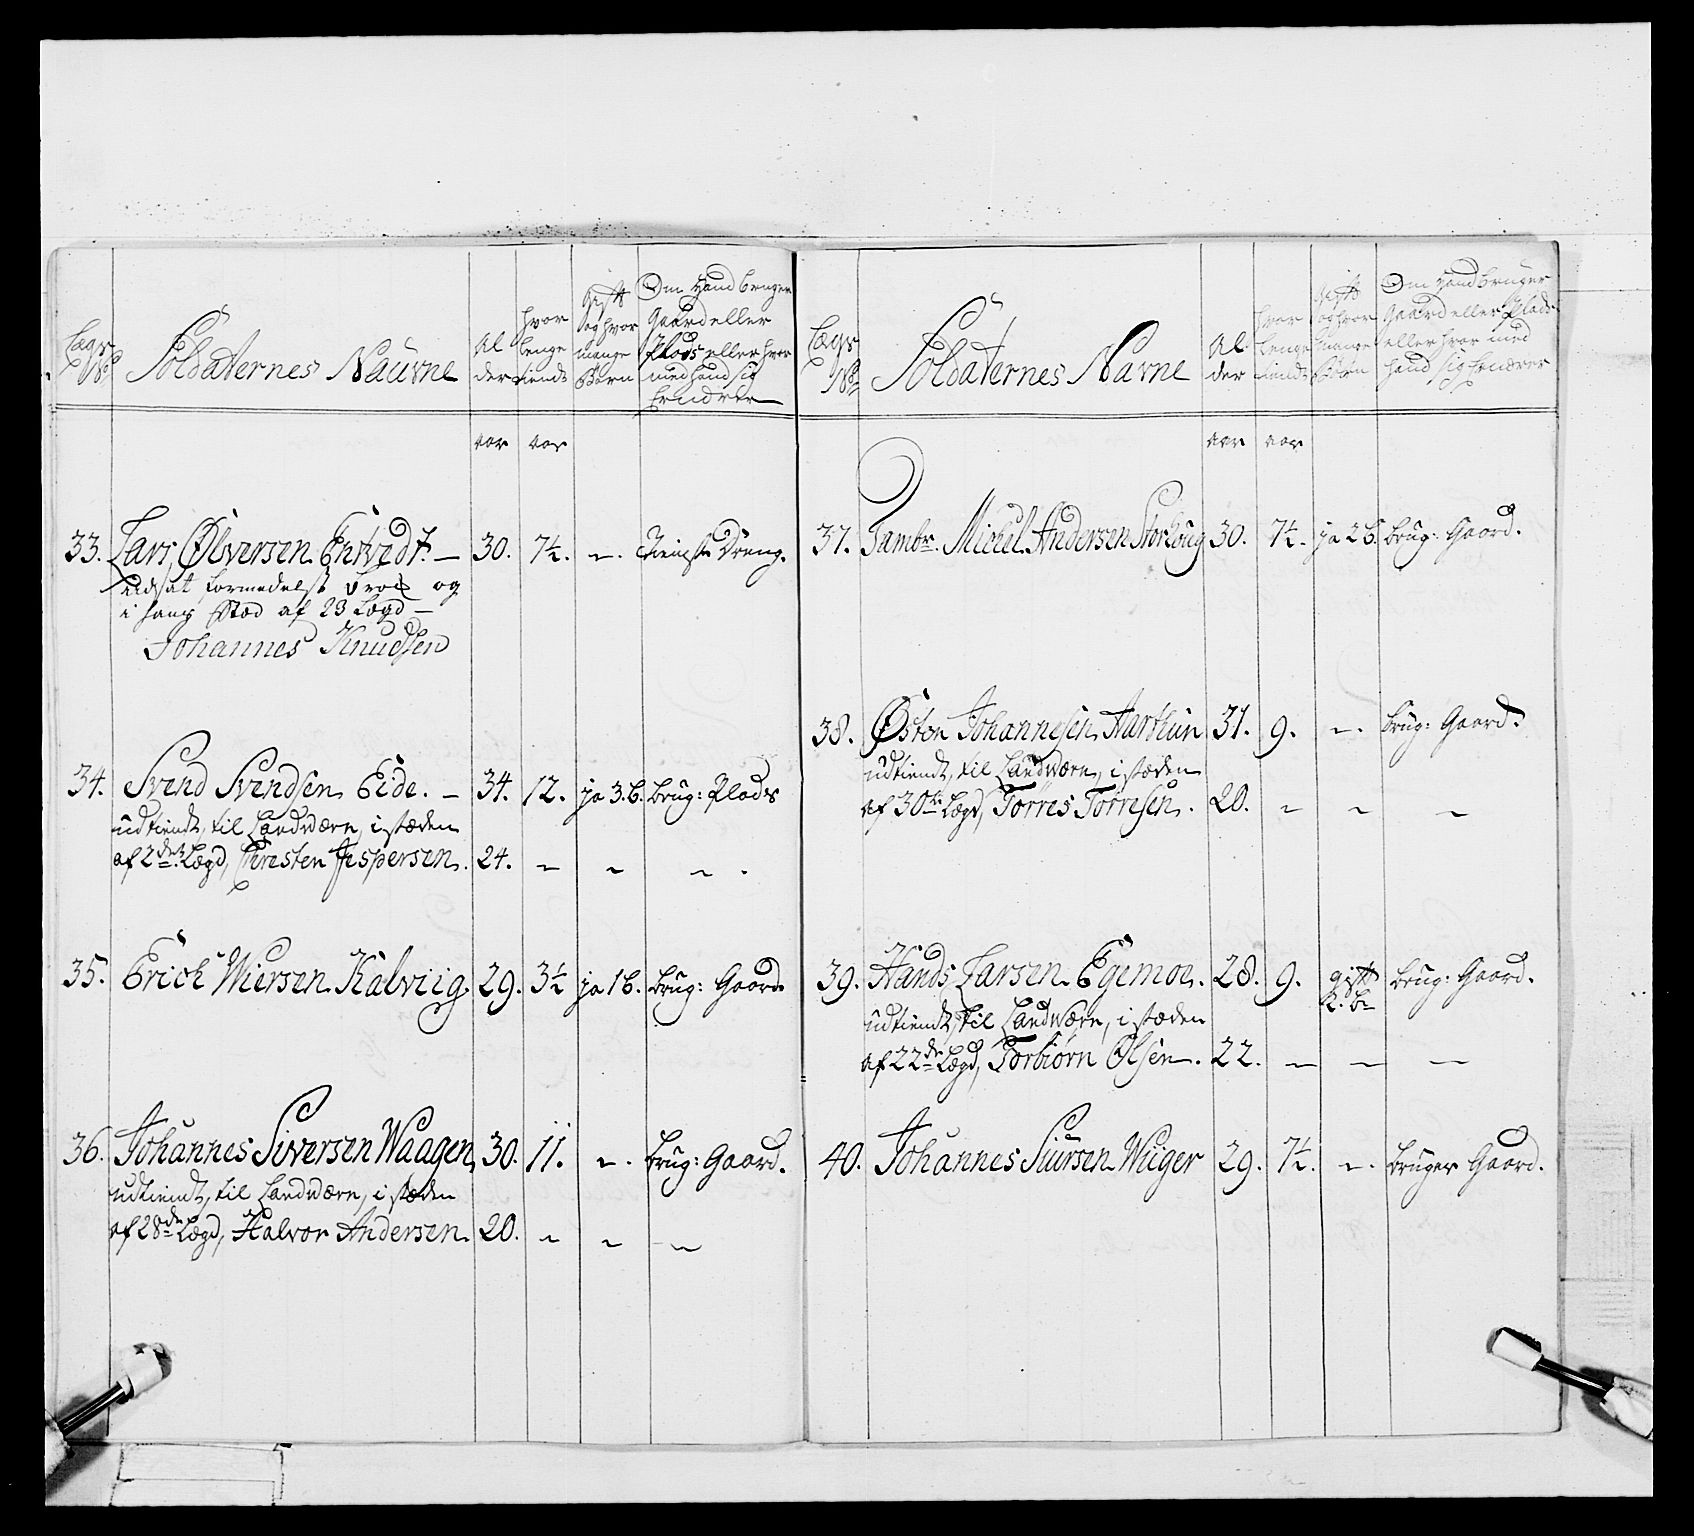 Lægs No
Soldaternes Naurne
Al der
hvor lenge tiendt
gift og hvor mange Børn
Om Hand bruger Gaard eller Plads eller hvor med hand sig Ernærer
aar aar
33. Lars Ølversen Entvedt. — 30. 7½. —. Tieniste Dreng.
udsat formedelst og
i hans Stæd af 23 Lægd —
Johannes Knudsen
34. Svend Svendsen Eide. — 34. 12. ja 3. b. brug: Plads
udtiendt, til Landværn, i stæden
af 2den Lægd, Christen Jespersen. 24. — — —.
35. Erick Wiersen Kalviig 29. 3½ ja 1 b. brug: Gaard
36. Johannes Siversen Waagen 30. 11. —. brug: Gaard.
udtiendt, til Landværn, i stæden
af 28de Lægd, Halvor Andersen. 20. — — —
Lægs No
Soldaternes Navne
Al der
hvor lenge tiendt
gift og hvor mange Børn
Om Hand bruger Gaard eller Plads eller hvor med hand sig Ernærer
aar aar
37. Tambr. Michel Andersen Storhoug 30. 7½. ja 2 b. brug: Gaard.
38. Østen Johannesen Aarthun 31. 9. —. brug: Gaard.
udtiendt, til Landværn, i stæden
af 30te Lægd, Torres Torresen. 20. — — —
39. Hands Larsen Egemoe. 28. 9. gift 2. b. brug: Gaard.
udtiendt, til Landværn, i stæden
af 22de Lægd, Torbiørn Olsen. 22. — — —
40. Johannes Siursen Wiiger 29. 7½. —. bruger Gaard.